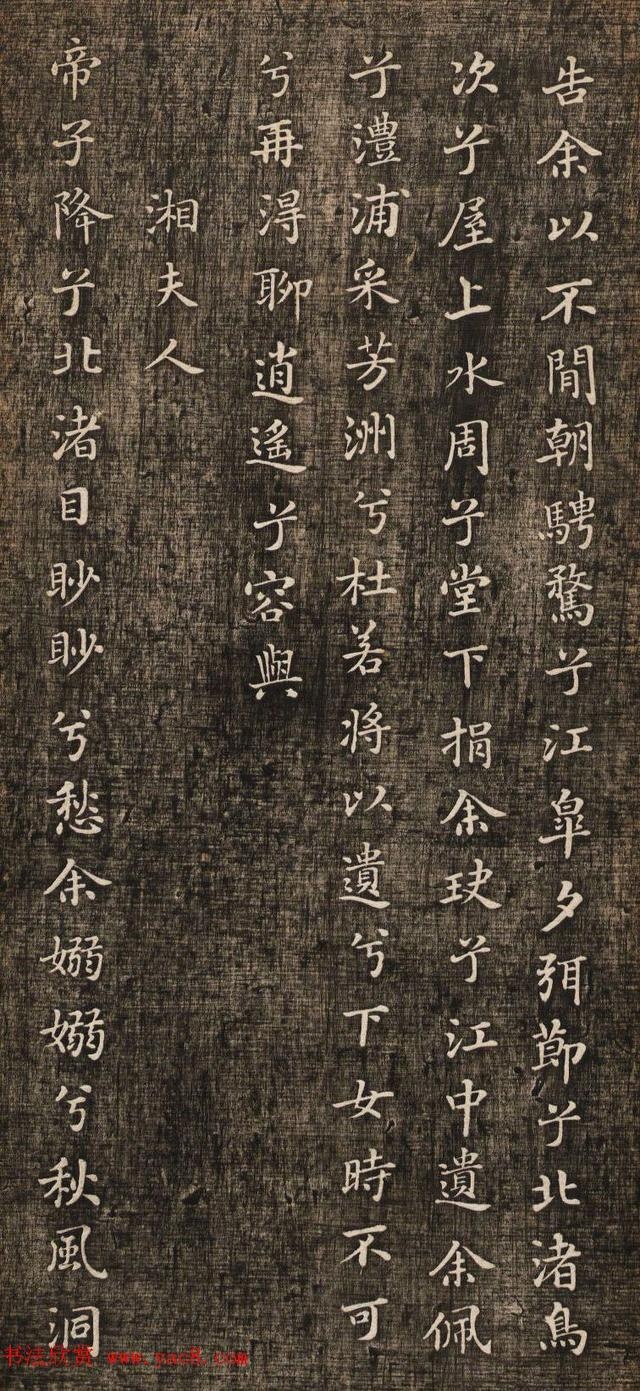 告余以不閒朝騁騖兮江皐夕弭節兮北渚鳥
次兮屋上水周兮堂下捐余玦兮江中遺余佩
兮澧浦采芳洲兮杜若將以遺兮下女時不可
兮再得聊逍遙兮容與
湘夫人
帝子降兮北渚目眇眇兮愁余嫋嫋兮秋風洞
书法欣赏 www.yac8.com